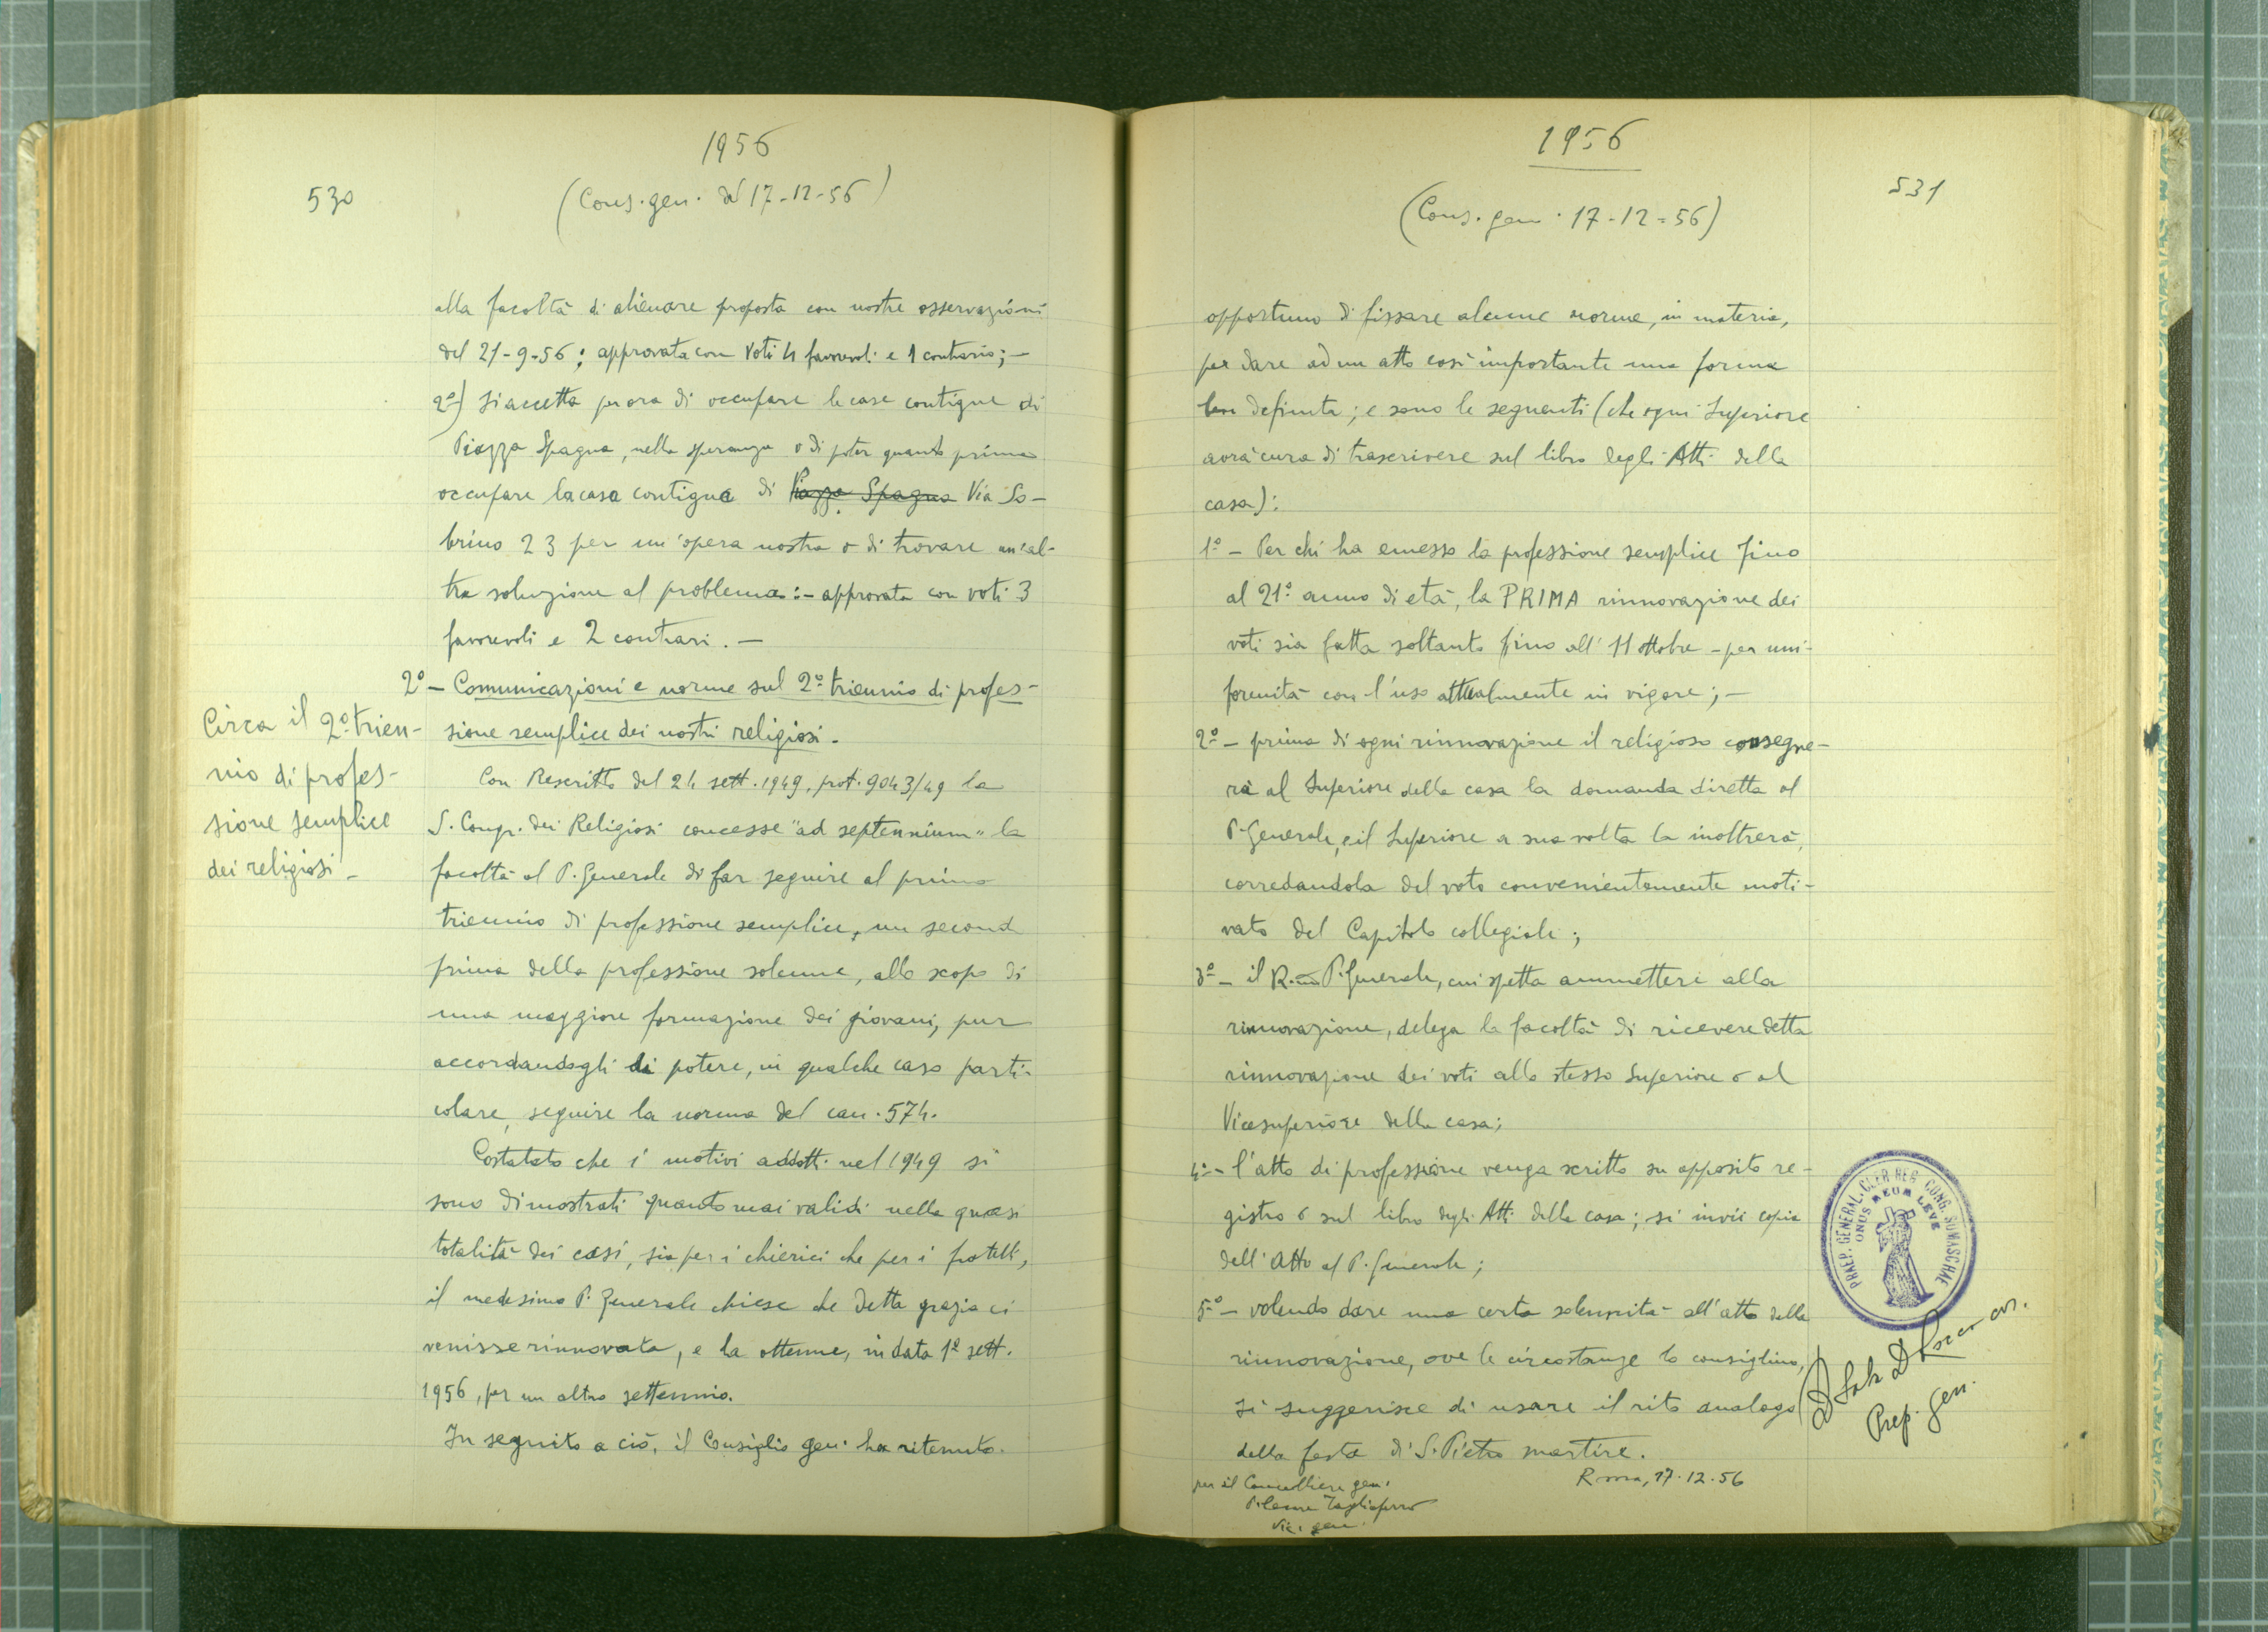 1956
530
(Cons. gen. del 17-12-56)
alla facoltà di alienare proposta con nostre osservazioni
del 21-9-56; approvata con voti 4 favorevoli e 1 contrario; -
2º) Si accetta per ora di occupare le case contigue di
Piazza Spagna, nella speranza o di poter quanto prima
occupare la casa contigua di Piazza Spagna Via So-
brino 23 per un'opera nostra o di trovare un'al-
tra soluzione al problema: - approvata con voti 3
favorevoli e 2 contrari. -
2º - Comunicazioni e norme sul 2º triennio di profes-
sione semplice dei nostri religiosi.
Circa il 2º trien-
nio di profes-
sione semplice
dei religiosi -
Con Rescritto del 24 sett. 1949, prot. 9043/49 la
S. Congr. dei Religiosi concesse "ad septennium" la
facoltà al P. Generale di far seguire al primo
triennio di professione semplice, un second
prima della professione solenne, allo scopo di
una maggiore formazione dei giovani, pur
accordandogli di potere, in qualche caso parti-
colare, seguire la norma del can. 574.
Costatato che i motivi addotti nel 1949 si
sono dimostrati quanto mai validi nella quasi
totalità dei casi, sia per i chierici che per i fratelli,
il medesimo P. Generale chiese che detta grazia ci
venisse rinnovata, e la ottenne, in data 1º sett.
1956, per un altro settennio.
In seguito a ciò, il Consiglio gen. ha ritenuto
1956
531
(Cons. gen. 17-12-56)
opportuno di fissare alcune norme, in materia,
per dare ad un atto così importante una forma
ben definita; e sono le seguenti (che ogni Superiore
avrà cura di trascrivere sul libro degli Atti della
casa):
1º - Per chi ha emesso la professione semplice fino
al 21º anno di età, la PRIMA rinnovazione dei
voti sia fatta soltanto fino all'11 ottobre - per uni-
formità con l'uso attualmente in vigore; -
2º - prima di ogni rinnovazione il religioso consegne-
rà al Superiore della casa la domanda diretta al
P. Generale, e il Superiore a sua volta la inoltrerà,
corredandola del voto convenientemente moti-
vato del Capitolo collegiale;
3º - il R.mo P. Generale, cui spetta ammettere alla
rinnovazione, delega la facoltà di ricevere detta
rinnovazione dei voti allo stesso Superiore o al
Vicesuperiore della casa;
4º - l'atto di professione venga scritto su apposito re-
gistro o sul libro degli Atti della casa; si invii copia
dell'Atto al P. Generale;
5º - volendo dare una certa solennità all'atto della
rinnovazione, ove le circostanze lo consiglino,
si suggerisce di usare il rito analogo
della festa di S. Pietro martire.
Roma, 17.12.56
per il Cancelliere gen.
P. Cesare Tagliaferro
Vic. gen.
PRAEP. GENERAL. CLER. REG. CONG. SOMASCHAE
ONUS MEUM LEVE
Prep. Gen.